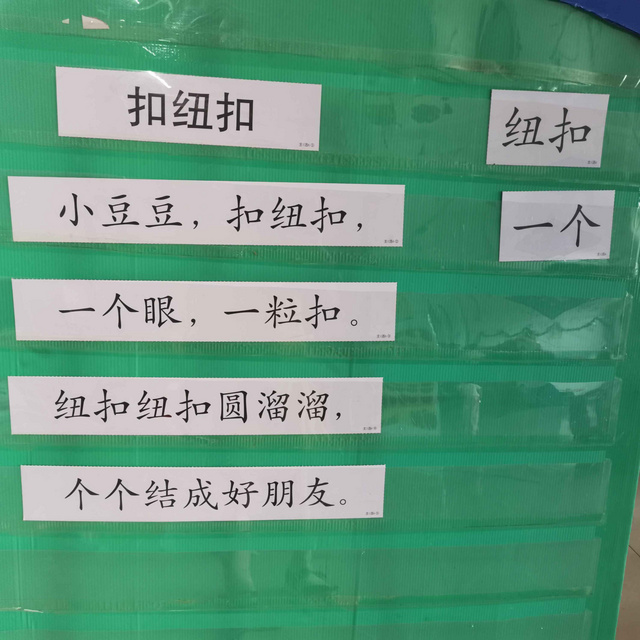 扣纽扣
纽扣
小豆豆，扣纽扣，
一个
一个眼，一粒扣。
纽扣纽扣圆溜溜，
个个结成好朋友。